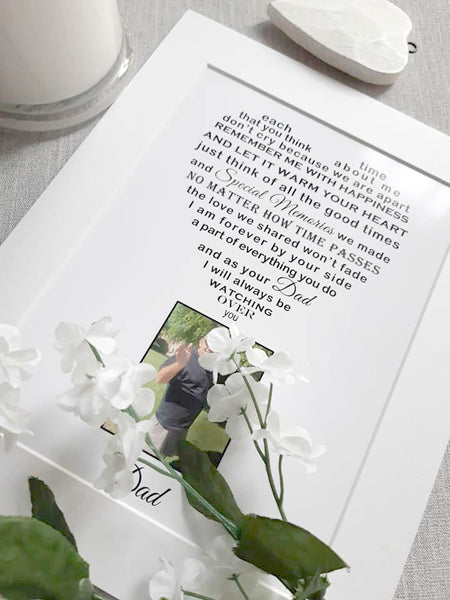 each time
that you think about me
don't cry because we are apart
REMEMBER ME WITH HAPPINESS
AND LET IT WARM YOUR HEART
just think of all the good times
and Special Memories we made
NO MATTER HOW TIME PASSES
the love we shared won't fade
I am forever by your side
a part of everything you do
and as your Dad
I will always be
WATCHING
OVER
you
Dad